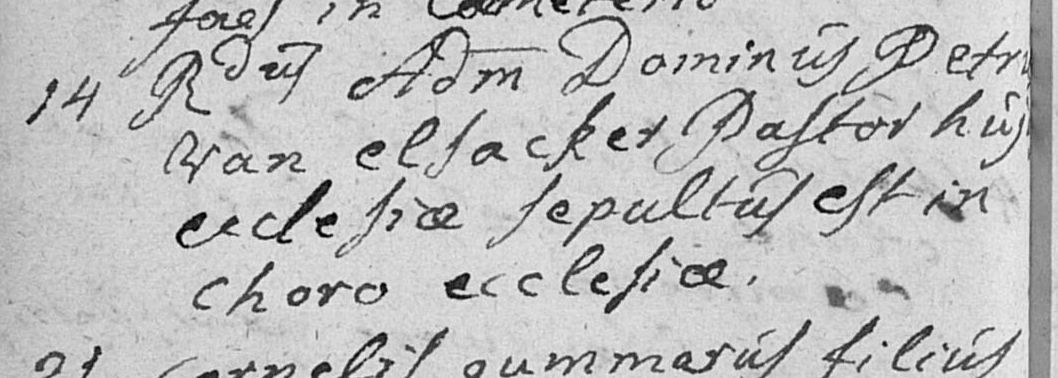 foes in Coemeterio
14 Rdus Adm Dominus Petru
van elsacker Pastor hūs
ecclesiæ sepultus est in
choro ecclesiæ.
21 Cornelis gummarus filius